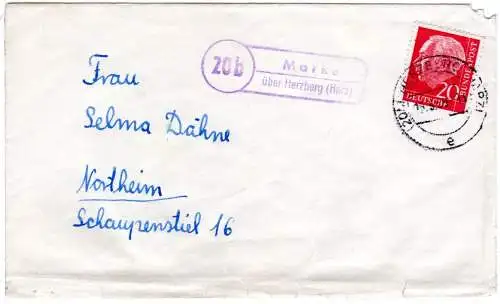 20b
Marke
über Herzberg (Harz)
20
DEUTSCHE
BUNDESPOST
e
Frau
Selma Dähne
Northeim
Schaupenstiel 16